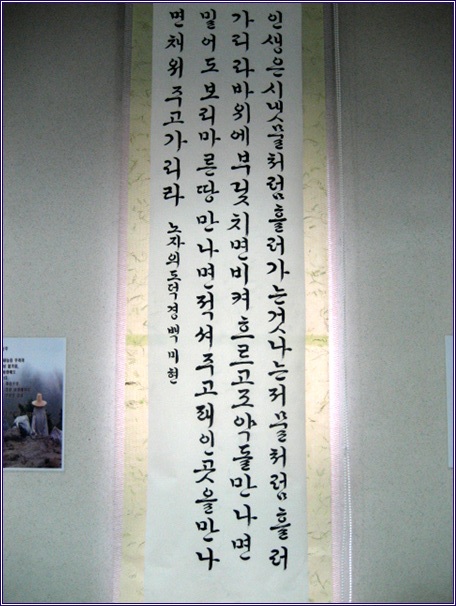 인생은시냇물처럼흘러가는것나는저물처럼흘러
가리라바위에부딪치면비켜흐르고조약돌만나면
밀어도보리마른땅만나면적셔주고패인곳을만나
면채워주고가리라 노자의도덕경백미현